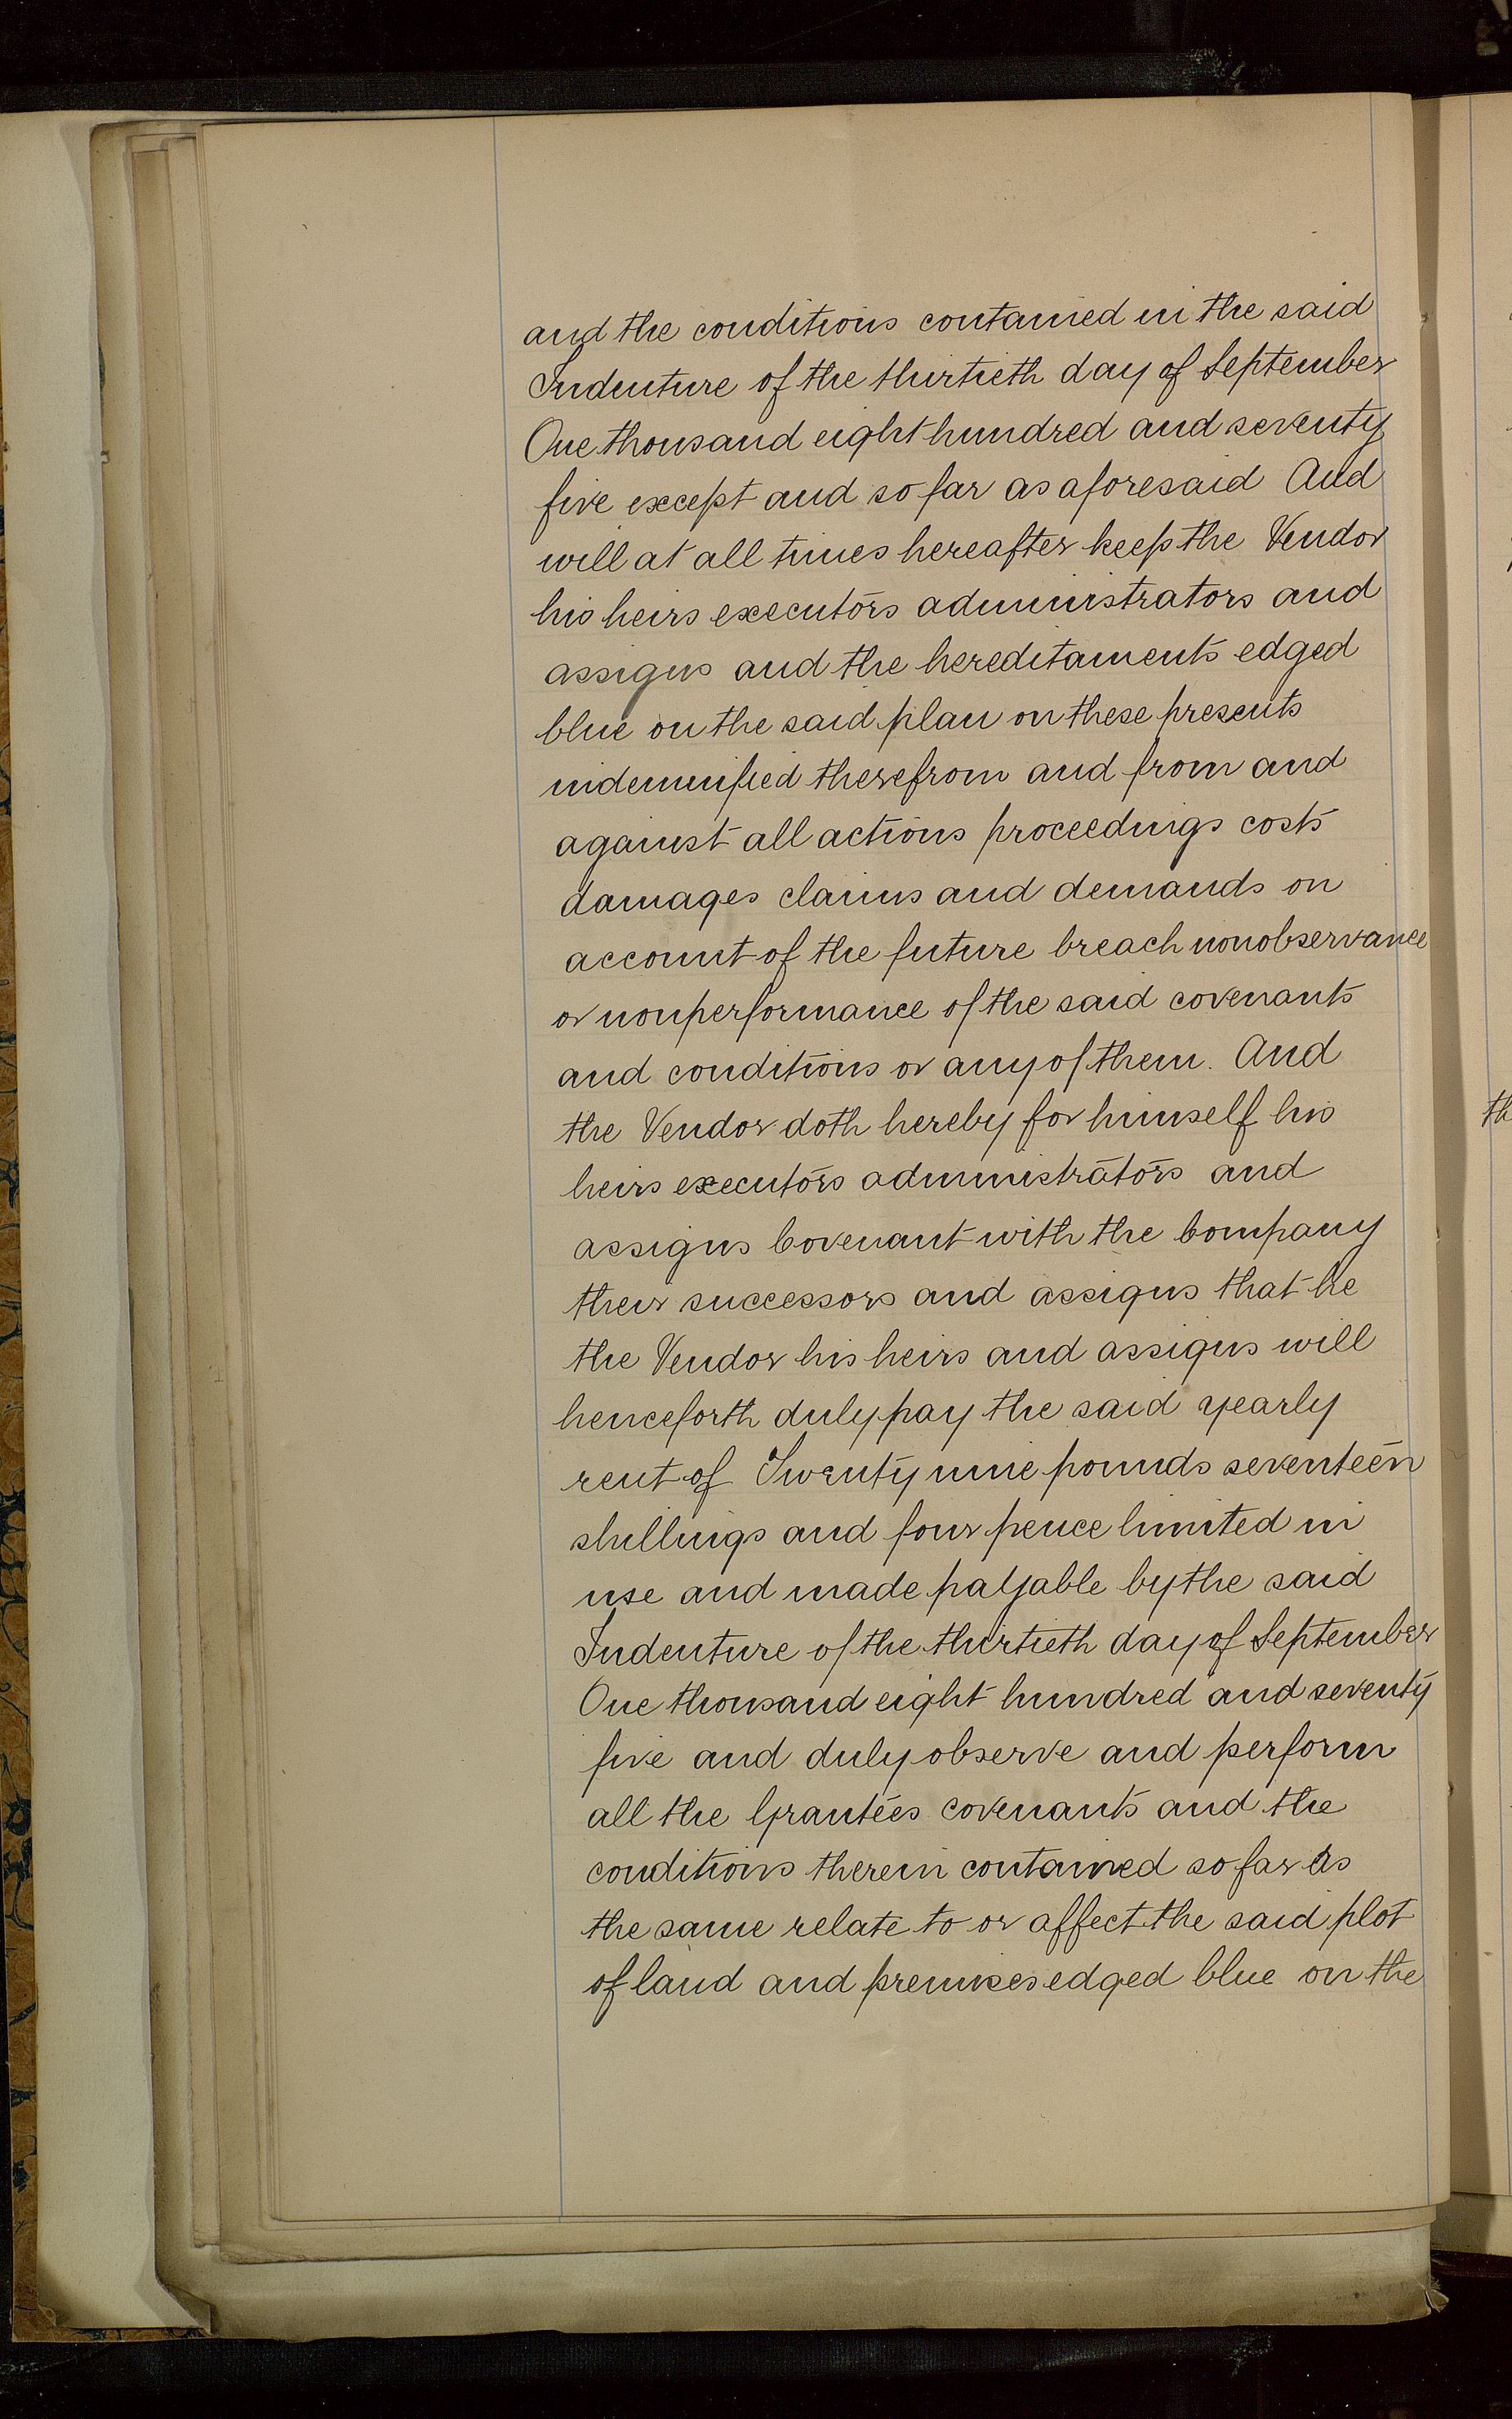 and the conditions contained in the said
Indenture of the thirtieth day of September
One thousand eight hundred and seventy
five except and so far as aforesaid And
will at all times hereafter keep the Vendor
his heirs executors administrators and
assigns and the hereditaments edged
blue on the said plan on these presents
indemnified therefrom and from and
against all actions proceedings costs
damages claims and demands on
account of the future breach nonobservance
or nonperformance of the said covenants
and conditions or any of them. And
the Vendor doth hereby for himself his
heirs executors administrators and
assigns Covenant with the Company
their successors and assigns that he
the Vendor his heirs and assigns will
henceforth duly pay the said yearly
rent of Twenty nine pounds seventeen
shillings and four pence limited in
use and made payable by the said
Indenture of the thirtieth day of September
One thousand eight hundred and seventy
five and duly observe and perform
all the Grantees covenants and the
conditions therein contained so far as
the same relate to or affect the said plot
of land and premises edged blue on the
th